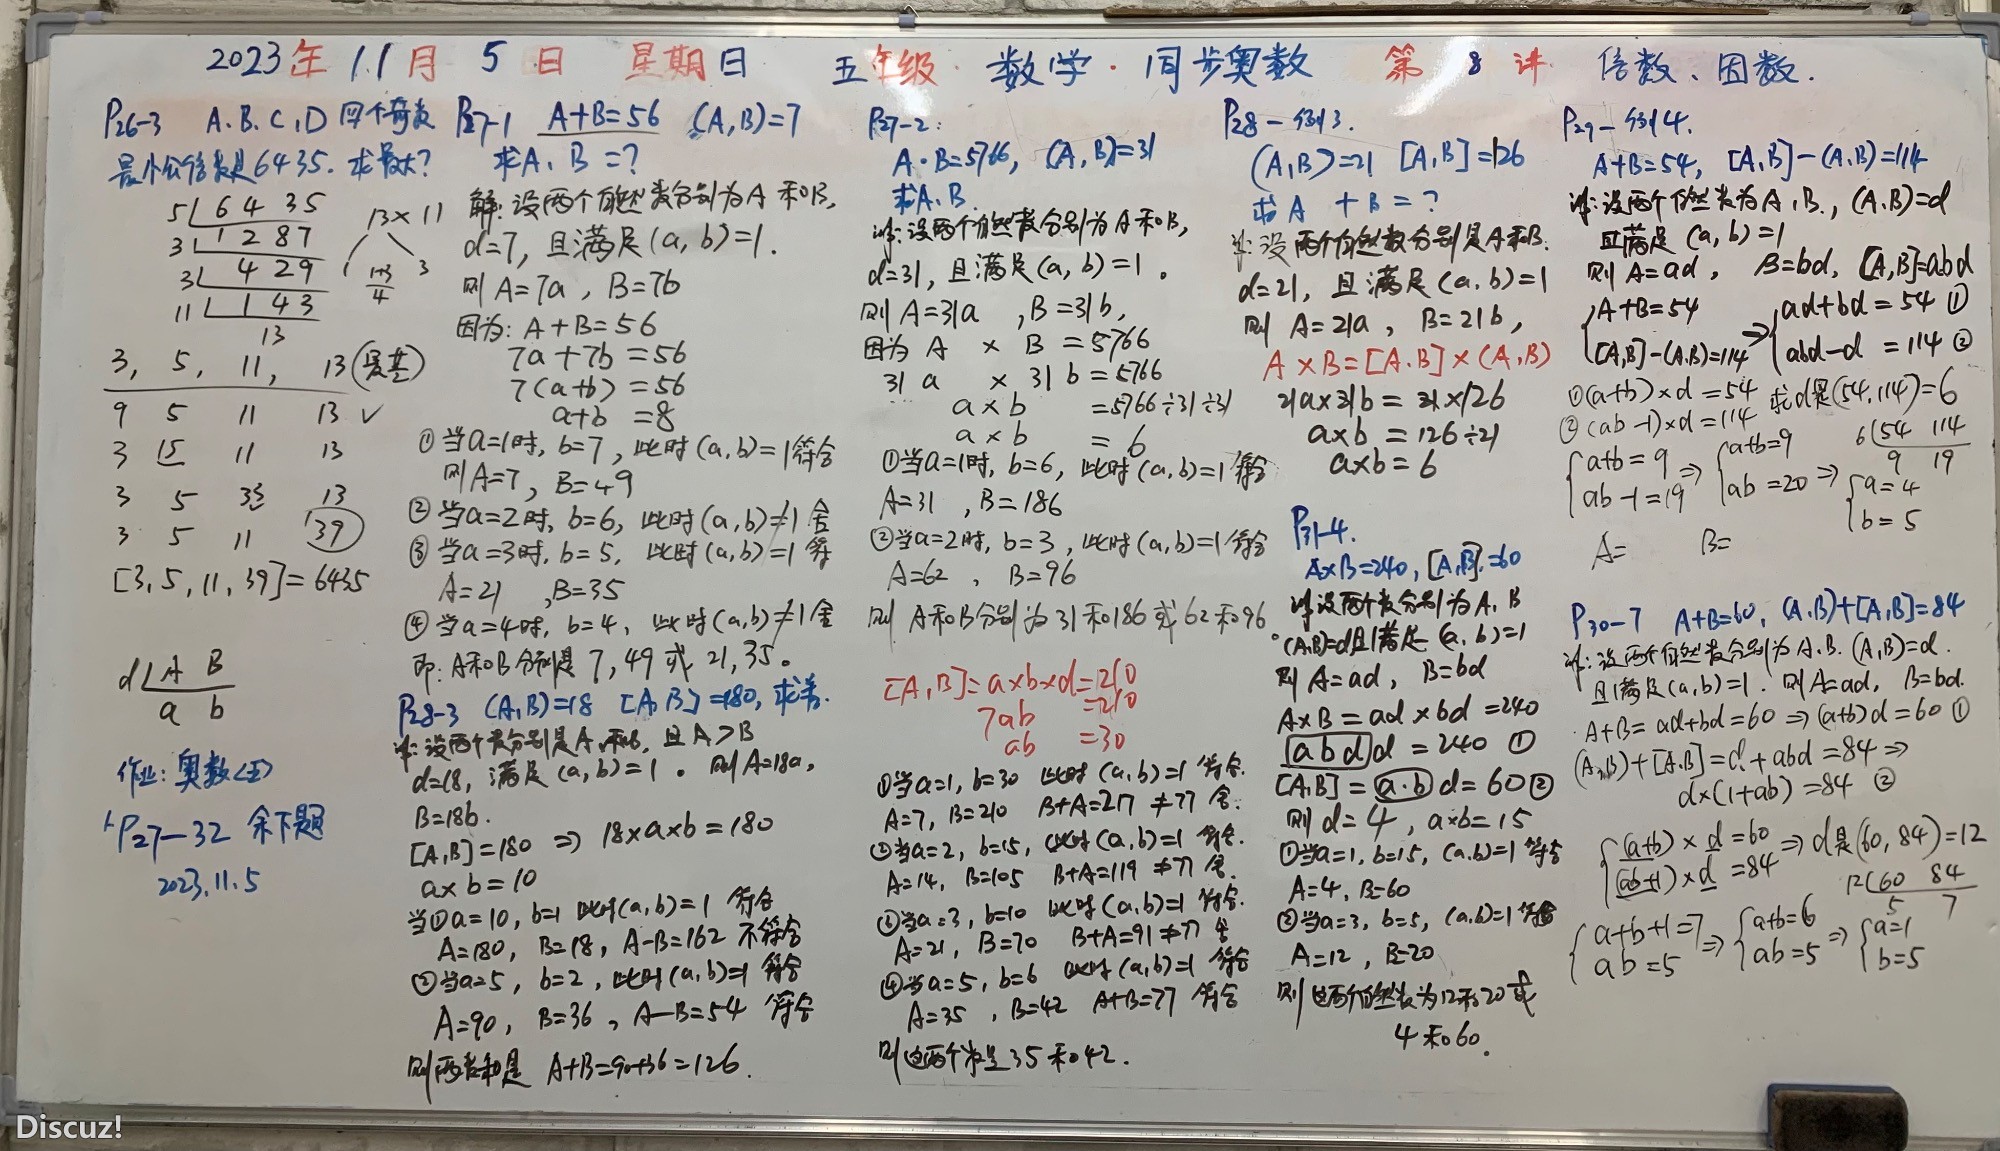 2023年 11月 5日 星期日 五年级·数学·同步奥数 第 8 讲 倍数、因数.
P26-3 A.B.C.D四个奇数
最小公倍数是6435.求最大?
5 6435
3 1287 13×11
3 429 1 1+3/4 3
11 143
13
3, 5, 11, 13
9 5 11 13 ✓
3 15 11 13
3 5 33 13
3 5 11 39
[3,5,11,39]=6435
d A B
a b
作业:奥数<五>
P27-32 余下题
2023.11.5
P27-1 A+B=56 (A,B)=7
求A、B=?
解:设两个自然数分别为A和B,
d=7,且满足(a,b)=1.
则A=7a,B=7b
因为:A+B=56
7a+7b=56
7(a+b)=56
a+b=8
①当a=1时,b=7,此时(a,b)=1符合
则A=7,B=49
②当a=2时,b=6,此时(a,b)≠1舍
③当a=3时,b=5,此时(a,b)=1符
A=21,B=35
④当a=4时,b=4,此时(a,b)≠1舍
即:A和B分别是7,49或21,35。
P28-3 (A,B)=18 [A,B]=180,求差.
设两个数分别是A和B,且A>B
d=18,满足(a,b)=1。则A=18a,
B=18b.
[A,B]=180 ⇒ 18×a×b=180
a×b=10
当①a=10,b=1此时(a,b)=1符合
A=180,B=18,A-B=162不符合
②当a=5,b=2,此时(a,b)=1符合
A=90,B=36,A-B=54符合
则两数和是 A+B=90+36=126.
P27-2:
A·B=5766,(A,B)=31
求A、B.
解:设两个自然数分别为A和B,
d=31,且满足(a,b)=1。
则A=31a,B=31b,
因为A×B=5766
31a×31b=5766
a×b=5766÷31÷31
a×b=6
①当a=1时,b=6,此时(a,b)=1符合
A=31,B=186
②当a=2时,b=3,此时(a,b)=1符合
A=62,B=96
则A和B分别为31和186或62和96。
[A,B]=a×b×d=210
7ab=210
ab=30
①当a=1,b=30此时(a,b)=1符合.
A=7,B=210 B+A=217≠77舍.
②当a=2,b=15,此时(a,b)=1符合.
A=14,B=105 B+A=119≠77舍.
③当a=3,b=10此时(a,b)=1符合.
A=21,B=70 B+A=91≠77舍
④当a=5,b=6此时(a,b)=1符合
A=35,B=42 A+B=77符合
则这两个数是35和42.
P28-例3.
(A,B)=21 [A,B]=126
求A+B=?
设两个自然数分别是A和B.
d=21,且满足(a,b)=1
则A=21a,B=21b,
A×B=[A.B]×(A,B)
21a×21b=21×126
a×b=126÷21
a×b=6
P31-4.
A×B=240,[A,B]=60
解设两个数分别为A、B
(A,B)=d且满足(a,b)=1
则A=ad,B=bd
A×B=ad×bd=240
abdd=240①
[A,B]=a·bd=60②
则d=4,a×b=15
①当a=1,b=15,(a,b)=1符合
A=4,B=60
②当a=3,b=5,(a,b)=1符合
A=12,B=20
则这两个自然数为12和20或
4和60.
P29-例4.
A+B=54,[A,B]-(A,B)=114
解:设两个自然数为A,B,(A,B)=d
且满足(a,b)=1
则A=ad,B=bd,[A,B]=abd
A+B=54 ⇒ ad+bd=54①
[A,B]-(A,B)=114 abd-d=114②
①(a+b)×d=54 求d是(54,114)=6
②(ab-1)×d=114 6 54 114
9 19
a+b=9 ⇒ a+b=9
ab-1=19 ab=20 ⇒ a=4
b=5
A= B=
P30-7 A+B=60,(A,B)+[A,B]=84
解:设两个自然数分别为A.B.(A,B)=d.
且满足(a,b)=1.则A=ad,B=bd.
A+B=ad+bd=60⇒(a+b)d=60①
(A,B)+[A.B]=d+abd=84⇒
d×(1+ab)=84②
(a+b)×d=60 ⇒ d是(60,84)=12
(ab+1)×d=84 12 60 84
5 7
a+b+1=7 ⇒ a+b=6 ⇒ a=1
ab=5 ab=5 b=5
Discuz!